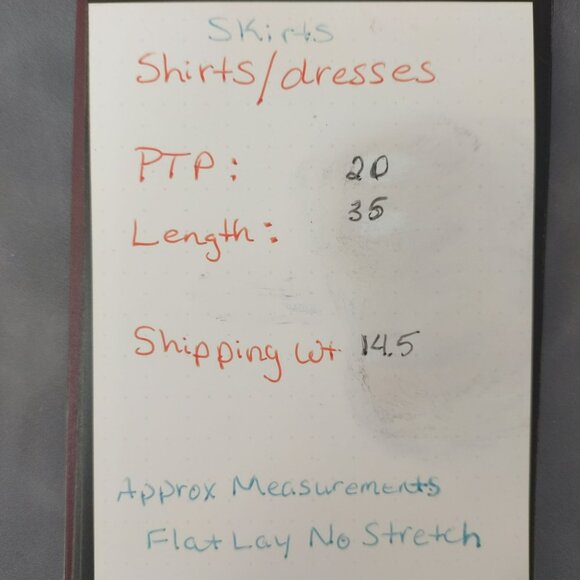 Skirts
Shirts/dresses
PTP: 20
Length: 35
Shipping Wt 14.5
Approx Measurements
Flat Lay No Stretch